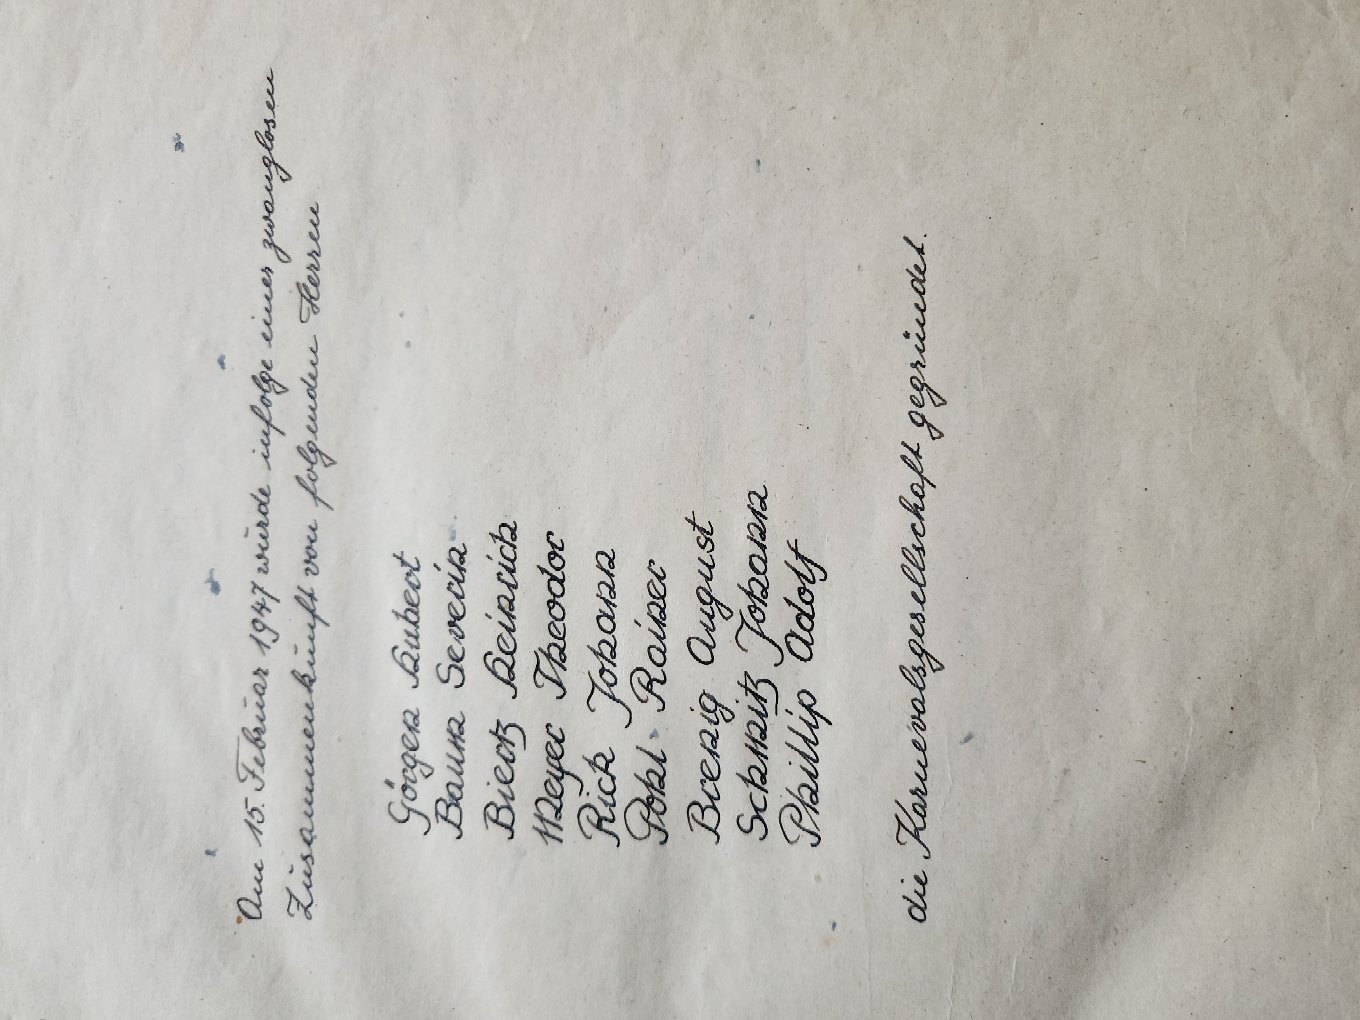 Am 15. Februar 1947 wurde infolge einer zwanglosen
Zusammenkunft von folgenden Herren
Görgen Hubert
Baum Severin
Biertz Heinrich
Meyer Theodor
Rick Johann
Pohl Rainer
Brenig August
Schmitz Johann
Phillip Adolf
die Karnevalsgesellschaft gegründet.